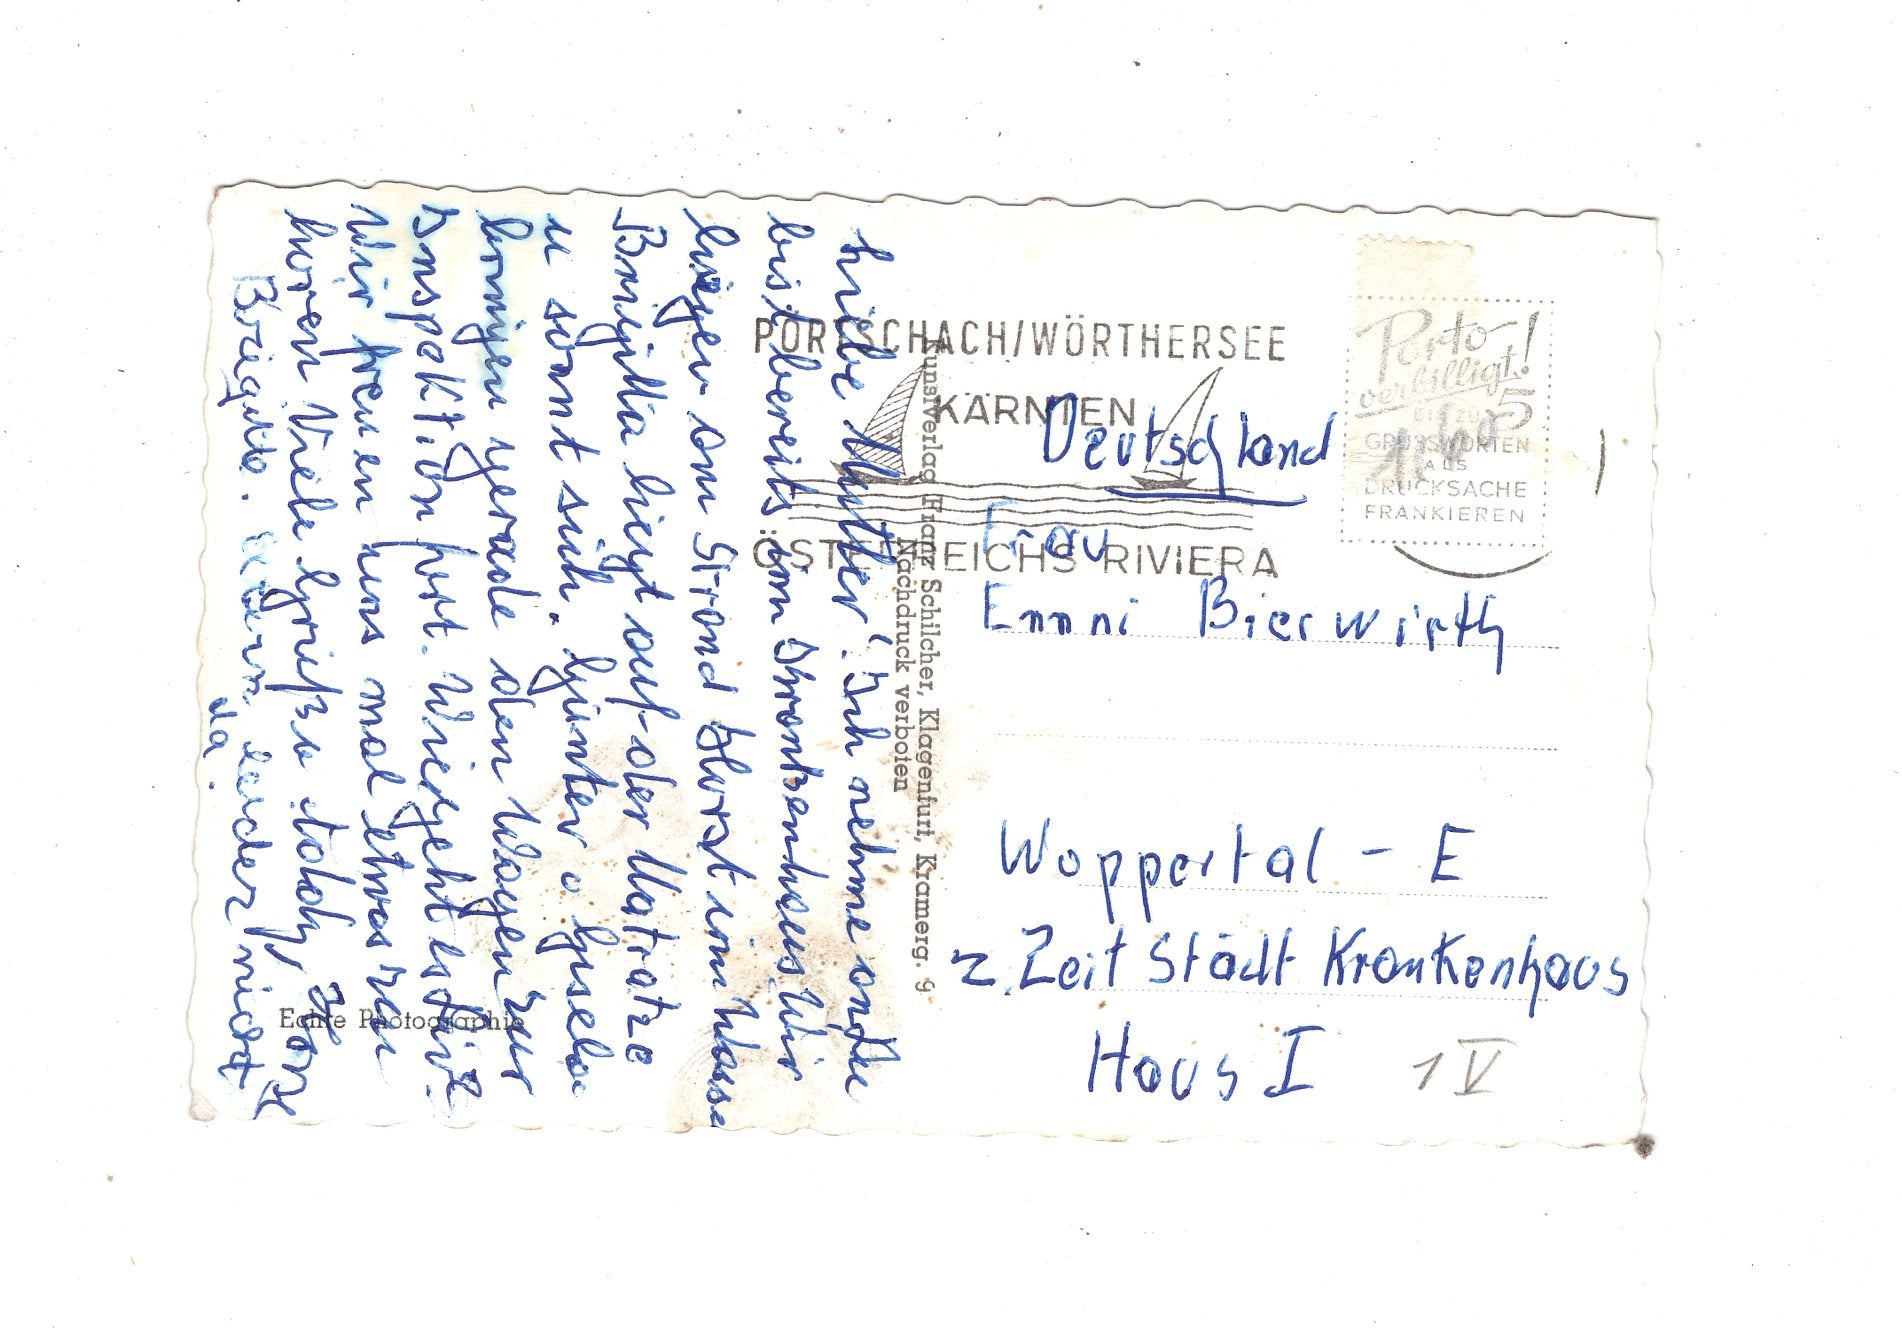 Liebe Mutter! Ich nehme an du
bist bereits im Krankenhaus. Wir
liegen am Strand Horst im Wasser
Brigitta liegt auf der Matratze
u sonnt sich. Günter u Gisela
bringen gerade den Wagen zur
Inspektion fort. Wie geht es dir?
Wir freuen uns mal etwas zu
hören Viele Grüße
Brigitte.
leider nicht
da.
Echte Photographie
Kunstverlag Franz Schilcher, Klagenfurt, Kramerg. 9
Nachdruck verboten
PÖRTSCHACH/WÖRTHERSEE
KÄRNTEN
ÖSTERREICHS RIVIERA
Porto
verbilligt!
BIS ZU 5
GRUSSWORTEN
ALS
DRUCKSACHE
FRANKIEREN
Deutschland
Frau
Emmi Bierwirth
Wuppertal - E
z. Zeit Städt Krankenhaus
Haus I 1 V